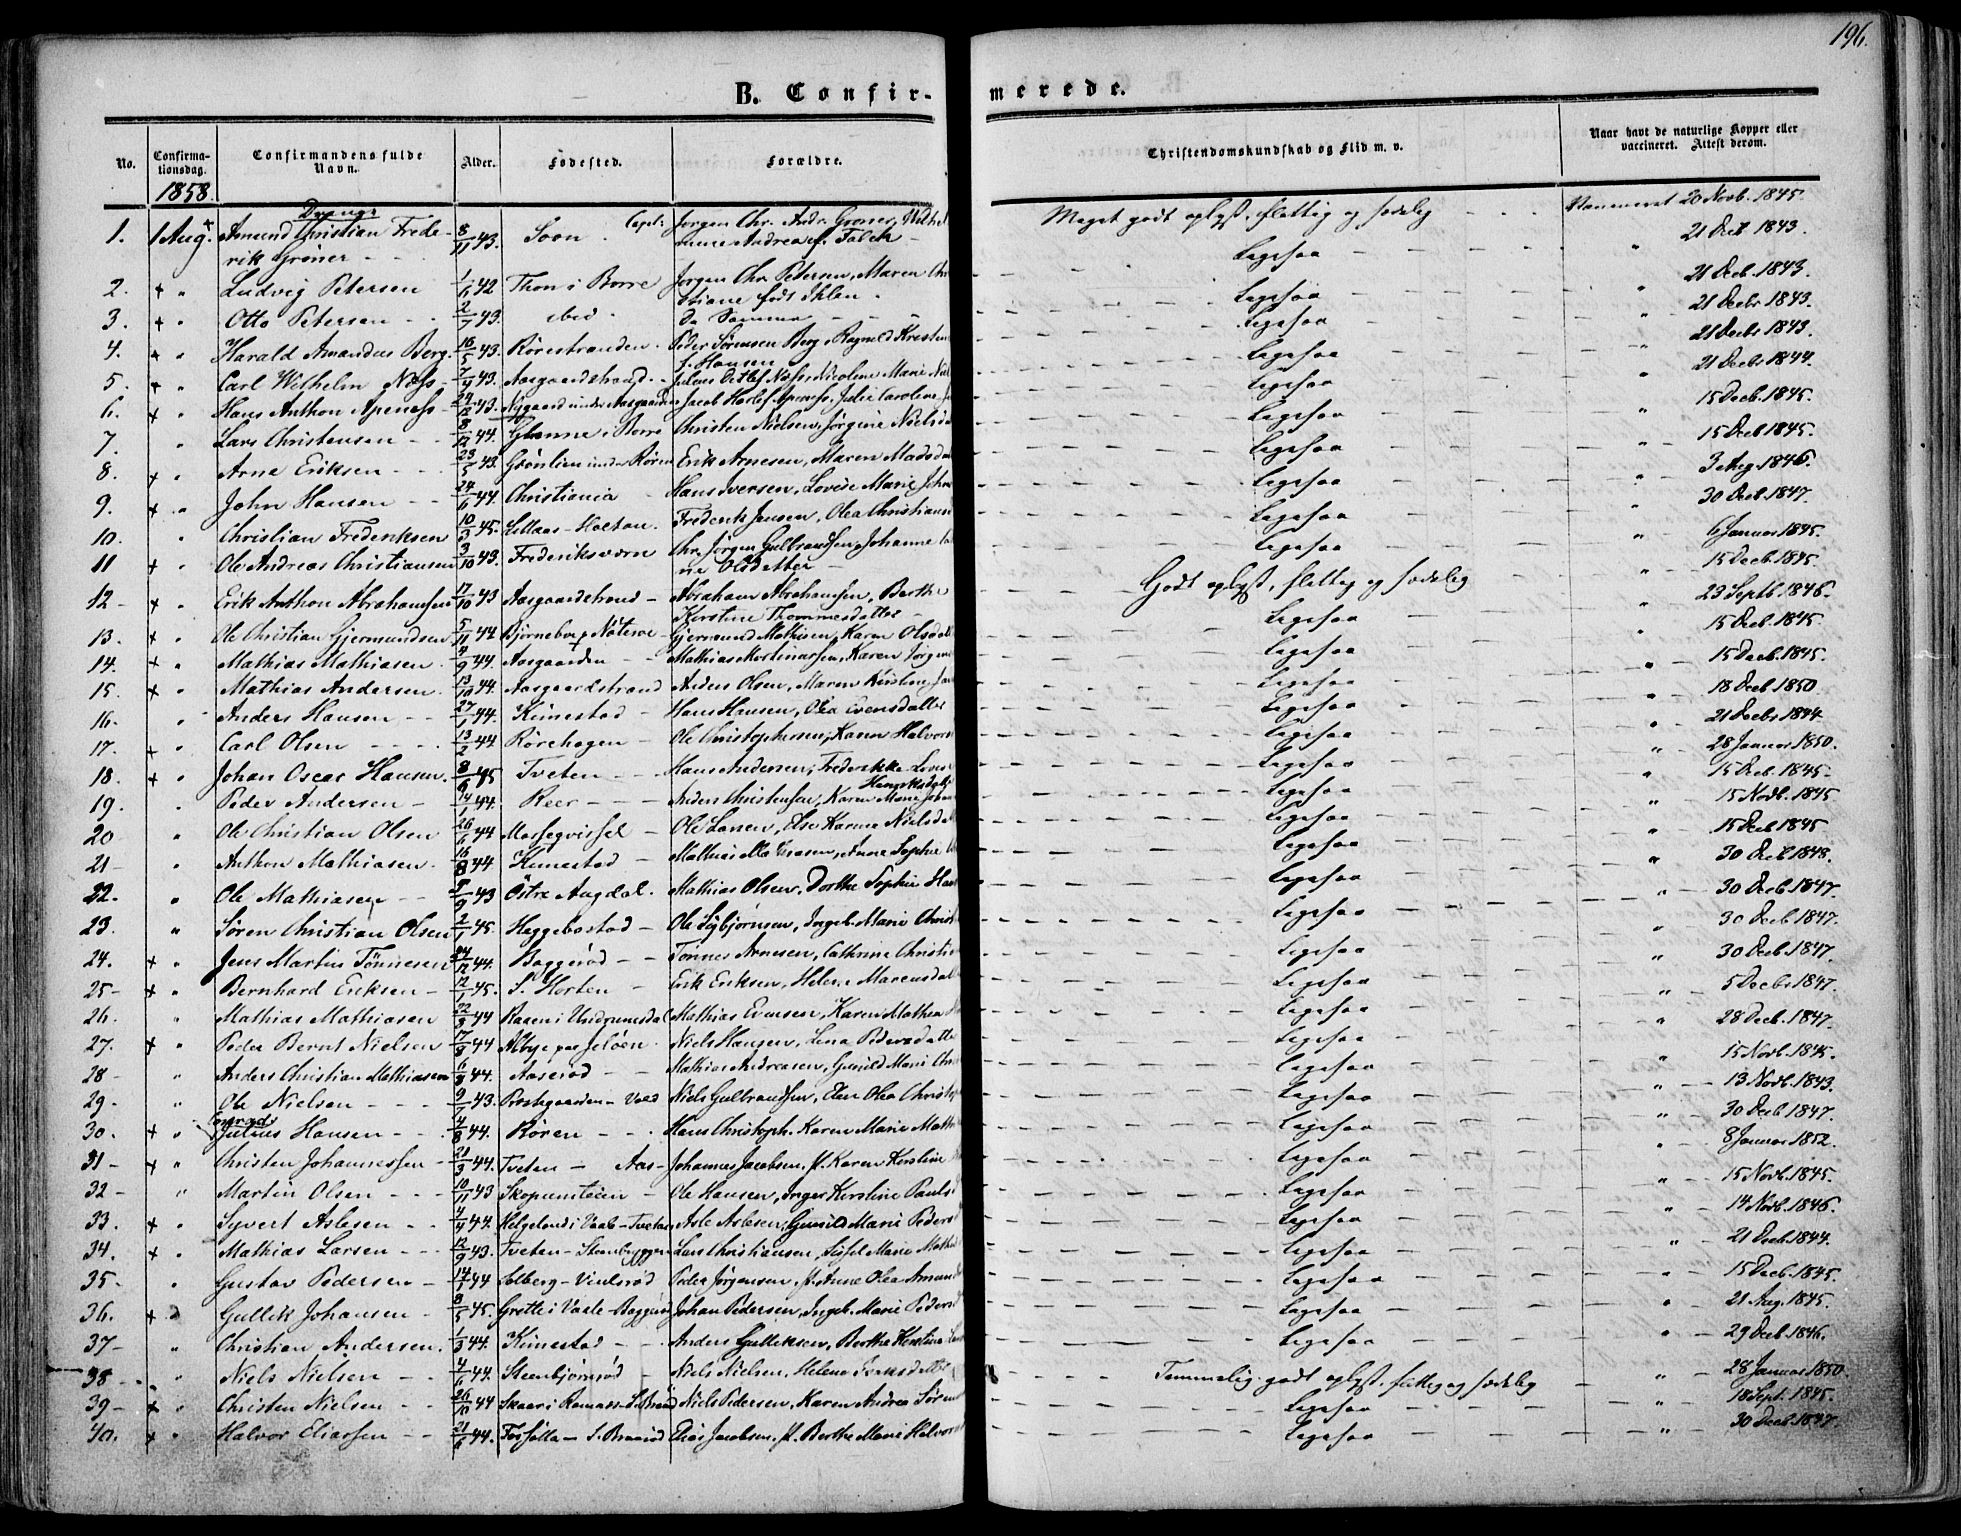 196.
B. Confir- merede.
No. Confirmationsdag. Confirmandens fulde Navn. Alder. Fødested. Forældre. Christendomskundskab og Flid m. v. Naar havt de naturlige Kopper eller vaccineret. Attest derom.
1858.
Drenge
1. 1 Aug. Amund Christian Frederik Grøner 8/11 43. Soon Capt: Jørgen Chr. Andr. Grøner, Andrea f. Falck Meget godt oplyst, flittig og sædelig 20 Novb. 1845.
2. + " Ludvig Petersen 1/1 42 Thon i Borre Jørgen Chr. Petersen, Maren Chri stiane født Ihlen Ligesaa " 21 Oct 1843.
3. + " Otto Petersen 2/7 43. ibid Do Samme Ligesaa " 21 Decb. 1843.
4. + " Harald Amandus Berg 16/5 43. Rørestranden Peder Sørensen Berg, Ragnild Kirstine Hansen Ligesaa " 21 Decbr 1843.
5. + " Carl Wilhelm Næss 7/9 43. Aasgaardstrand Julius Detlef Næss, Nicoline Marie Ligesaa " 21 Decbr 1843.
6. + " Hans Anthon Apenæss 24/12 43. Nygaard under Aasgaarden Jacob Apenæss, Julie Caroline Ligesaa " 21 Decbr 1844.
7. " Lars Christensen 8/12 44. Glenne i Borre Christen Nielsen, Jørgine Nielsda Ligesaa 15 Decb. 1845.
8. + " Arne Eriksen 23/5 43. Grønlien under Røren Erik Arnesen, Maren Madsda Ligesaa " 15 Decb 1845.
9. + " John Hansen 24/6 44. Christiania Hans Iversen, Lovise Marie Joh Ligesaa " 3 Aug. 1846.
10. " Christian Frederiksen 10/3 45. Holtan Frederik Jensen, Olea Christians Ligesaa 30 Decb. 1847.
11 + " Ole Andreas Christiansen 3/10 43. Frederiksværn Chr. Jørgen Gulbrandsen, Johanne ne Olsdatter Ligesaa " 6 Januar 1845.
12 - + " Erik Anthon Abrahamsen 17/10 43 Aasgaardstrand Abraham Abrahamsen, Berthe Kirstine Thommesdatter Godt oplyst, flittig og sædelig 15 Decb. 1845.
13. + " Ole Christian Gjermundsen 5/11 44 Bjørneberg Nøterøe Gjermund Mathisen, Karen Olsdat Ligesaa " 23 Septb 1846.
14. + " Mathias Mathiasen 4/9 44. Aasgaarden Mathias Martinussen, Karen Jørgine Ligesaa " 15 Decb. 1845
15. + " Mathias Andersen 13/10 44. Aasgaardstrand Anders Olsen, Maren Kirstine Ligesaa " 15 Decb. 1845.
16. " Anders Hansen 27/1 44. Kimestad Hans Hansen, Olea Evensdatter Ligesaa " 18 Decb 1850
17. + " Carl Olsen 13/2 44 Rørehagen Ole Christophersen, Karen Halvors Ligesaa " 21 Decbr 1844
18. + " Johan Oscar Hansen 8/6 45 Tveten Hans Andersen, Frederikke Lovise Ligesaa " 28 Januar 1850.
19. " Peder Andersen 14/1 44. Reer Anders Christensen, Karen Marie Ligesaa " 15 Decb. 1845.
20 " Ole Christian Olsen 26/1 44 Ole Larsen, Else Karine Nielsdat Ligesaa " 15 Novb. 1845
21 - " Anthon Mathiasen 16/8 44. Kimestad Mathias Mathiasen, Anne Sophie Ligesaa " 15 Decb 1845
22. " Ole Mathiasen 43 Østre Augdal Mathias Olsen, Dorthe Sophie Han Ligesaa " 30 Decb 1848.
23. " Søren Christian Olsen 2/1 45. Heggebostad Ole Sigbjørnsen, Ingeb. Marie Christ Ligesaa " 30 Decb. 1847.
24. + " Jens Martin Tønnesen 24/12 44. Baggerød Tønnes Arnesen, Cathrine Christi Ligesaa 30 Decb. 1847.
25 - + " Bernhard Eriksen 12/1 45. S. Horten Erik Eriksen, Helene Marcusdat Ligesaa 30 Decb. 1847.
26. " Mathias Mathiasen 22/3 44 Raaen i Undrumsdal Mathias Evensen, Karen Mathea Ligesaa " 5 Decbr 1847.
27. + " Peder Bernt Nielsen 17/8 44 Albye paa Jeløen Niels Hansen, Lena Pedersdatter Ligesaa " 28 Decb. 1847.
28 - " Anders Christian Mathiasen 6/8 44. Aaserød Mathias Andreasen, Gunild Marie Ligesaa " 15 Novb. 1845.
29 - " Ole Nielsen 9/7 43. Prestegaarden Niels Gulbrandsen, Elen Olea Christop Ligesaa " 13 Novb. 1843.
30. + " Conrad Julius Hansen 4/8 44. Røren Hans Christoph. Karen Marie Math Ligesaa " 30 Decb. 1847.
31 - + " Christen Johannessen 21/3 44. Tveten - Aas Johannes Jacobsen, Karen Kirstine Ligesaa " 8 Januar 1852.
32 - " Martin Olsen 10/11 43 Skopumteien Ole Hansen, Inger Kirstine Pauls Ligesaa 15 Novb. 1845.
33. + " Syvert Aslesen 4/4 44. Helgeland i Vaale - Tveten Asle Aslesen, Gunild Marie Peders Ligesaa " 14 Novb. 1846.
34. + " Mathias Larsen 12/9 43. Tveten - Steenbyggen Lars Christiansen, Sissel Marie Math Ligesaa " 21 Decb. 1844.
35 - " Gustav Pedersen 14/1 44 Solberg - Peder Jørgensen, Anne Olea Amund Ligesaa " 15 Decb. 1845.
36. + " Gullik Johansen 8/5 45. Grette i Vaale - Baggerød Johan Pedersen, Ingeb. Marie Peders Ligesaa " 21 Aug. 1845.
37 - " Christian Andersen 1/3 44. Kimestad Anders Gulliksen, Berthe Kirstine Ligesaa " 29 Decb 1846.
38 - " Niels Nielsen 4/6 44. Steenbjørnrød Niels Nielsen, Helene Temmelig godt oplyst, flittig og sædelig " 28 Januar 1850.
39 - + " Christen Nielsen 26/10 44 Skaar i Ramnæs Niels Pedersen, Karen Andrea Søren Ligesaa " 18 Sept. 1845.
40. + " Halvor Eliassen 21/6 44. S. Braarød Elias Jacobsen, Berthe Marie Halvors Ligesaa " 30 Decb. 1847.